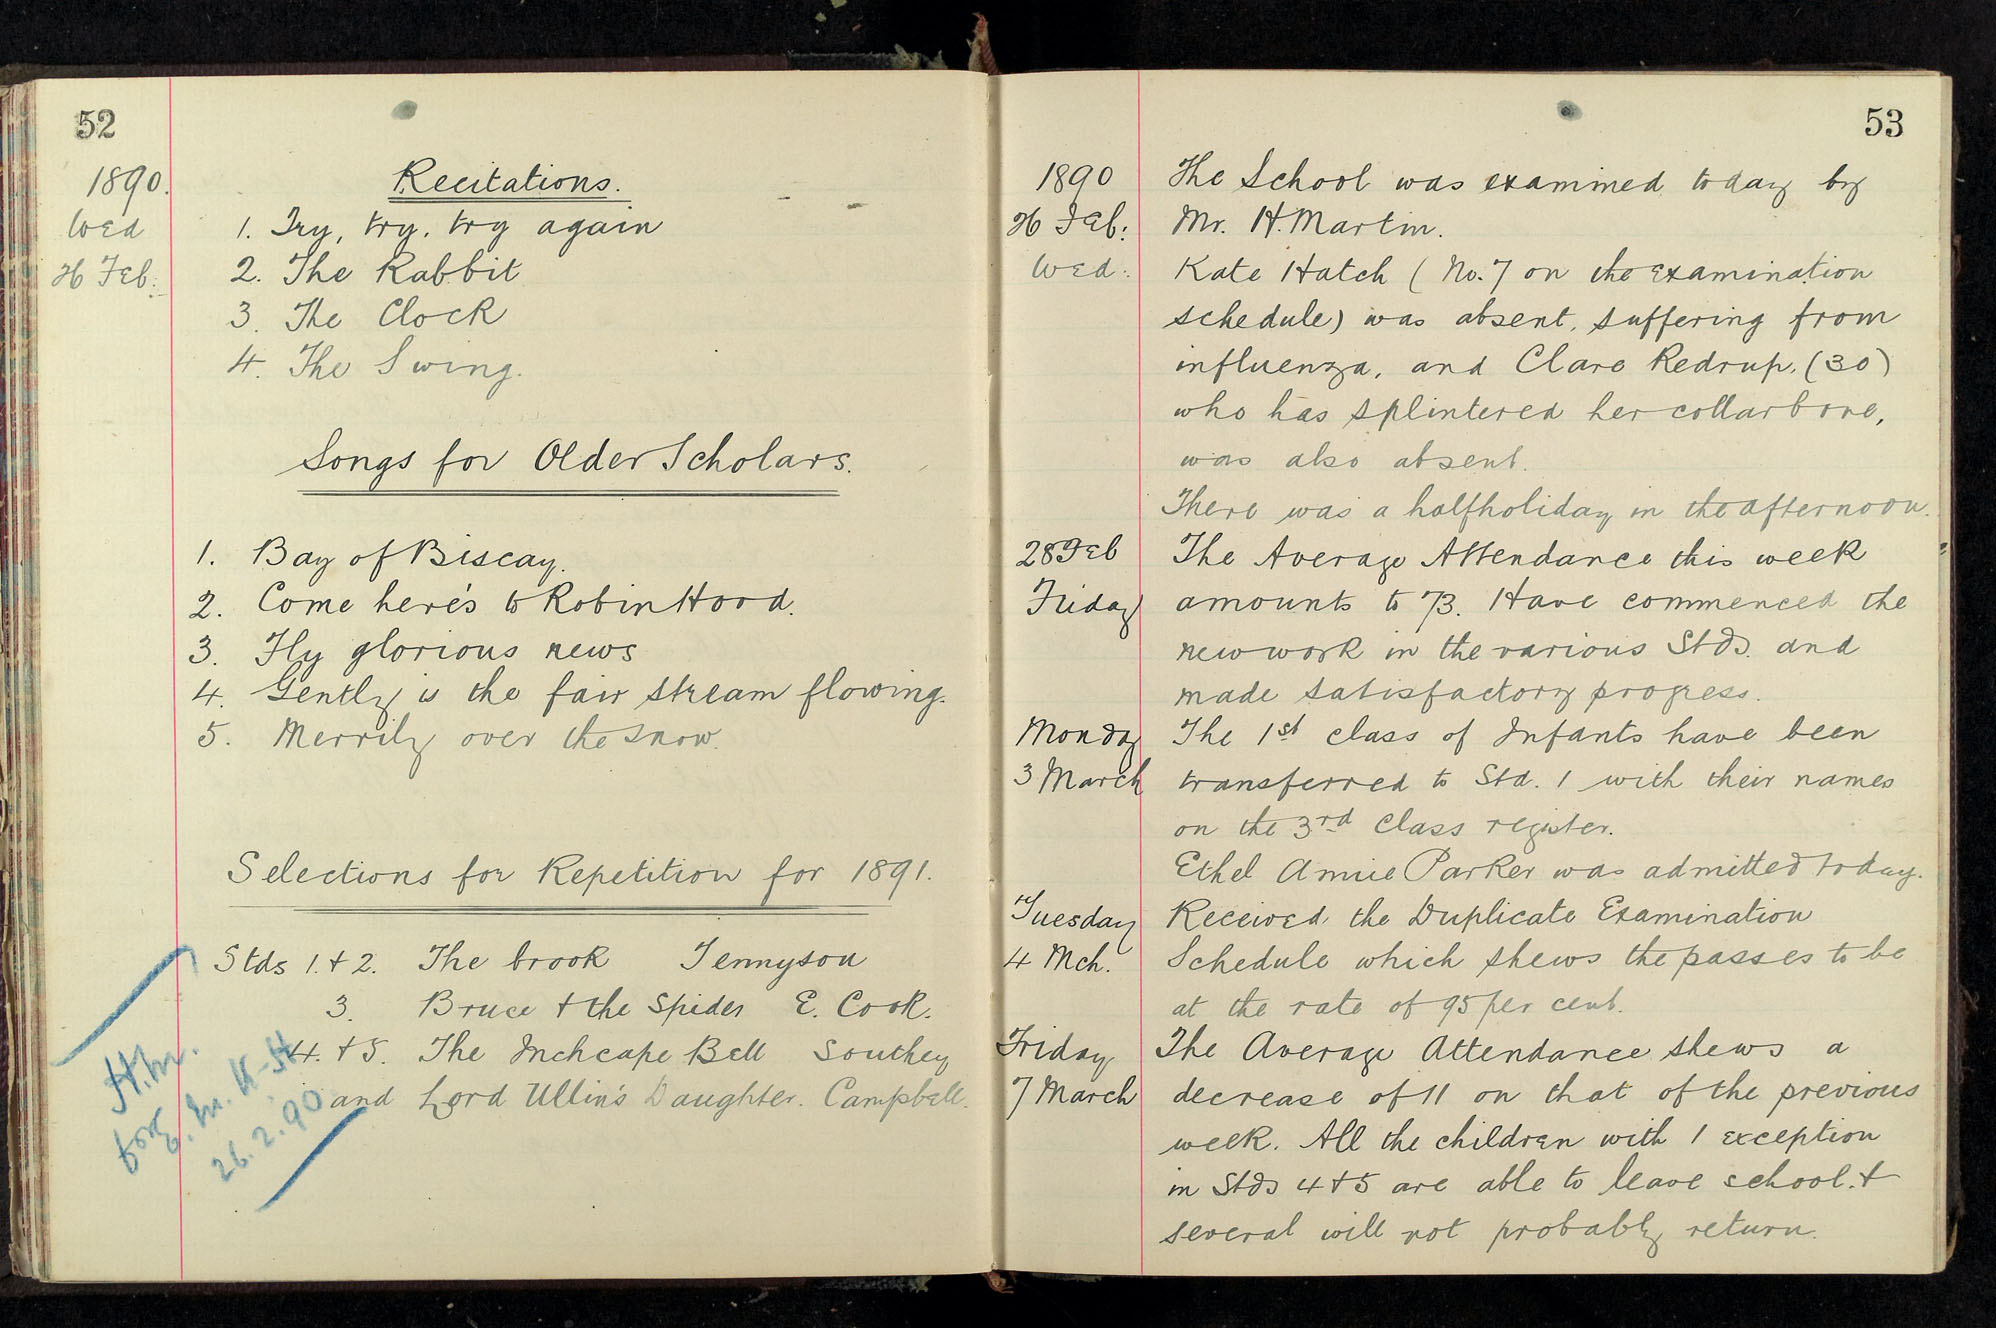 52
1890.
Wed
26 Feb:
Recitations.
1. Try, try, try again
2. The Rabbit
3. The Clock
4. The Swing.
Songs for Older Scholars.
1. Bay of Biscay.
2. Come here's to Robin Hood.
3. Fly glorious news
4. Gently is the fair stream flowing.
5. Merrily over the snow.
Selections for Repetition for 1891.
Stds 1. & 2. The brook Tennyson
3. Bruce & the Spider E. Cook.
4. & 5. The Inchcape Bell Southey
and Lord Ullin's Daughter. Campbell.
H.M.
for
26.2.90
53
1890
26 Feb:
Wed:
The School was examined today by
Mr. H. Martin.
Kate Hatch (No. 7 on the examination
schedule) was absent, suffering from
influenza, and Clare Redrup, (30)
who has splintered her collarbone,
was also absent.
There was a halfholiday in the afternoon.
28 Feb
Friday
The Average Attendance this week
amounts to 73. Have commenced the
new work in the various Stds. and
made satisfactory progress.
Monday
3 March
The 1st class of Infants have been
transferred to Std. 1 with their names
on the 3rd Class register.
Ethel Annie Parker was admitted today.
Tuesday
4 Mch.
Received the Duplicate Examination
Schedule which shews the passes to be
at the rate of 95 per cent.
Friday
7 March
The Average Attendance shews a
decrease of 11 on that of the previous
week. All the children with 1 exception
in Stds 4 & 5 are able to leave school. &
several will not probably return.